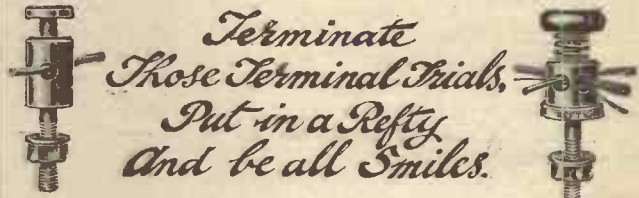 Terminate
Those Terminal Trials,
Put in a Refty
And be all Smiles.